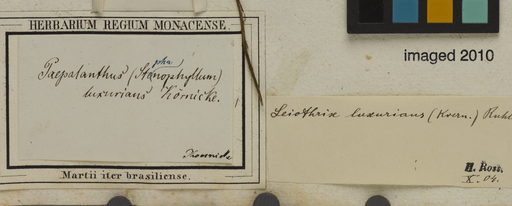 HERBARIUM REGIUM MONACENSE.
Paepalanthus (Stenophyllum)
pha
luxurians Körnicke.
Koernicke
Martii iter brasiliense.
imaged 2010
Leiothrix luxurians (Koern.) Ruhl
H. Ross.
X. 04.